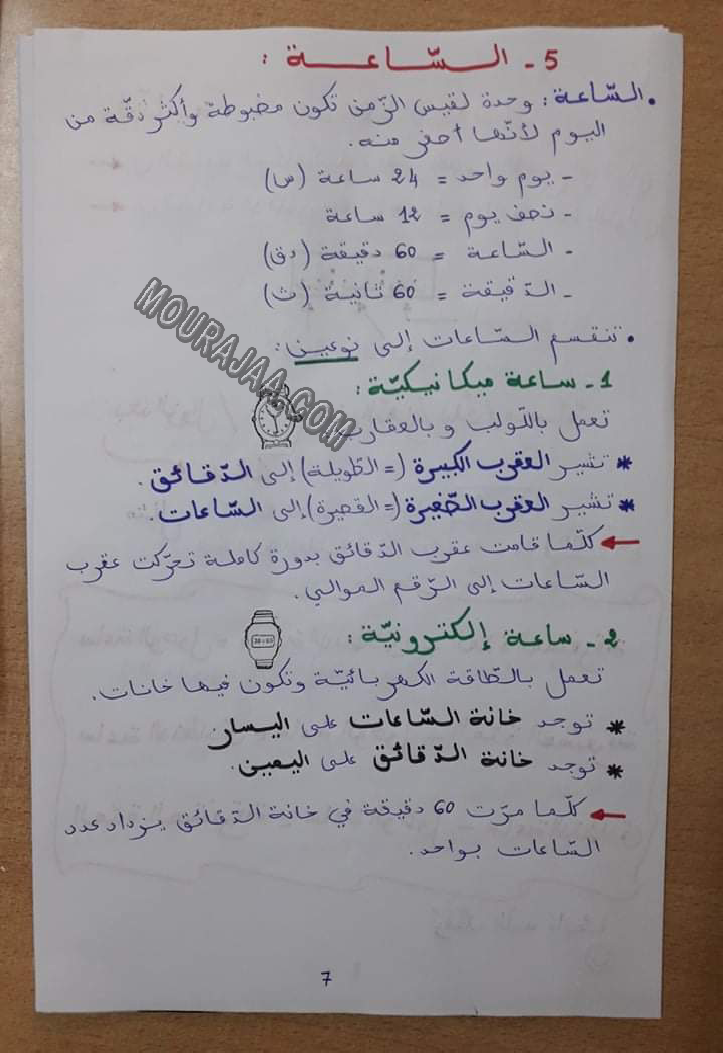 5 - السّاعة :
• السّاعة : وحدة لقيس الزّمن تكون مضبوطة وأكثر دقّة من
اليوم لأنّها أصغر منه.
- يوم واحد = 24 ساعة (س)
- نصف يوم = 12 ساعة
- السّاعة = 60 دقيقة (دق)
- الدّقيقة = 60 ثانية (ث)
• تنقسم السّاعات إلى نوعين :
1 - ساعة ميكانيكيّة :
تعمل باللّولب و بالعقارب
* تشير العقرب الكبيرة (= الطّويلة) إلى الدّقائق.
* تشير العقرب الصّغيرة (= القصيرة) إلى السّاعات.
← كلّما قامت عقرب الدّقائق بدورة كاملة تحرّكت عقرب
السّاعات إلى الرّقم الموالي.
2 - ساعة إلكترونيّة :
تعمل بالطّاقة الكهربائيّة وتكون فيها خانات.
* توجد خانة السّاعات على اليسار
* توجد خانة الدّقائق على اليمين.
← كلّما مرّت 60 دقيقة في خانة الدّقائق يزداد عدد
السّاعات بواحد.
7
MOURAJAA.COM